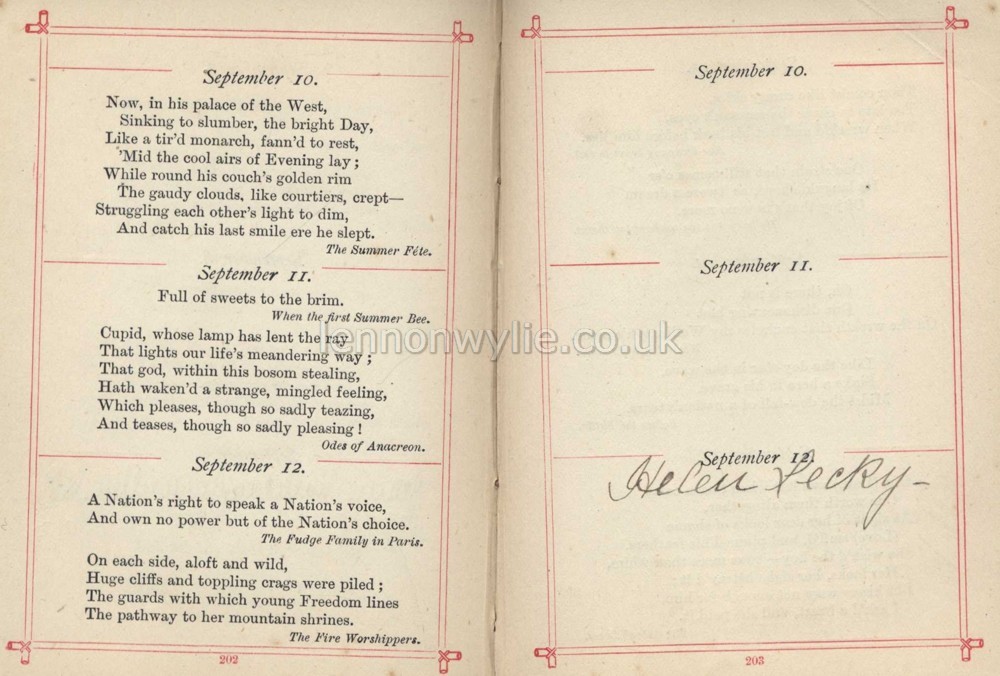 September 10.
Now, in his palace of the West,
Sinking to slumber, the bright Day,
Like a tir'd monarch, fann'd to rest,
'Mid the cool airs of Evening lay;
While round his couch's golden rim
The gaudy clouds, like courtiers, crept—
Struggling each other's light to dim,
And catch his last smile ere he slept.
The Summer Féte.
September 11.
Full of sweets to the brim.
When the first Summer Bee.
Cupid, whose lamp has lent the ray
That lights our life's meandering way;
That god, within this bosom stealing,
Hath waken'd a strange, mingled feeling,
Which pleases, though so sadly teazing,
And teases, though so sadly pleasing!
Odes of Anacreon.
September 12.
A Nation's right to speak a Nation's voice,
And own no power but of the Nation's choice.
The Fudge Family in Paris.
On each side, aloft and wild,
Huge cliffs and toppling crags were piled;
The guards with which young Freedom lines
The pathway to her mountain shrines.
The Fire Worshippers.
202
September 10.
September 11.
September 12.
Helen Lecky-
203
lennonwylie.co.uk